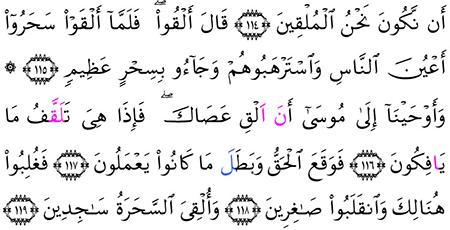 أَن نَّكُونَ نَحْنُ ٱلْمُلْقِينَ ﴿١١٤﴾ قَالَ أَلْقُوا۟ۖ فَلَمَّآ أَلْقَوْا۟ سَحَرُوٓا۟
أَعْيُنَ ٱلنَّاسِ وَٱسْتَرْهَبُوهُمْ وَجَآءُو بِسِحْرٍ عَظِيمٍ ﴿١١٥﴾ ۞
وَأَوْحَيْنَآ إِلَىٰ مُوسَىٰٓ أَنَ اَلْقِ عَصَاكَۖ فَإِذَا هِىَ تَلَقَّفُ مَا
يَافِكُونَ ﴿١١٦﴾ فَوَقَعَ ٱلْحَقُّ وَبَطَلَ مَا كَانُوا۟ يَعْمَلُونَ ﴿١١٧﴾ فَغُلِبُوا۟
هُنَالِكَ وَٱنقَلَبُوا۟ صَـٰغِرِينَ ﴿١١٨﴾ وَأُلْقِىَ ٱلسَّحَرَةُ سَـٰجِدِينَ ﴿١١٩﴾